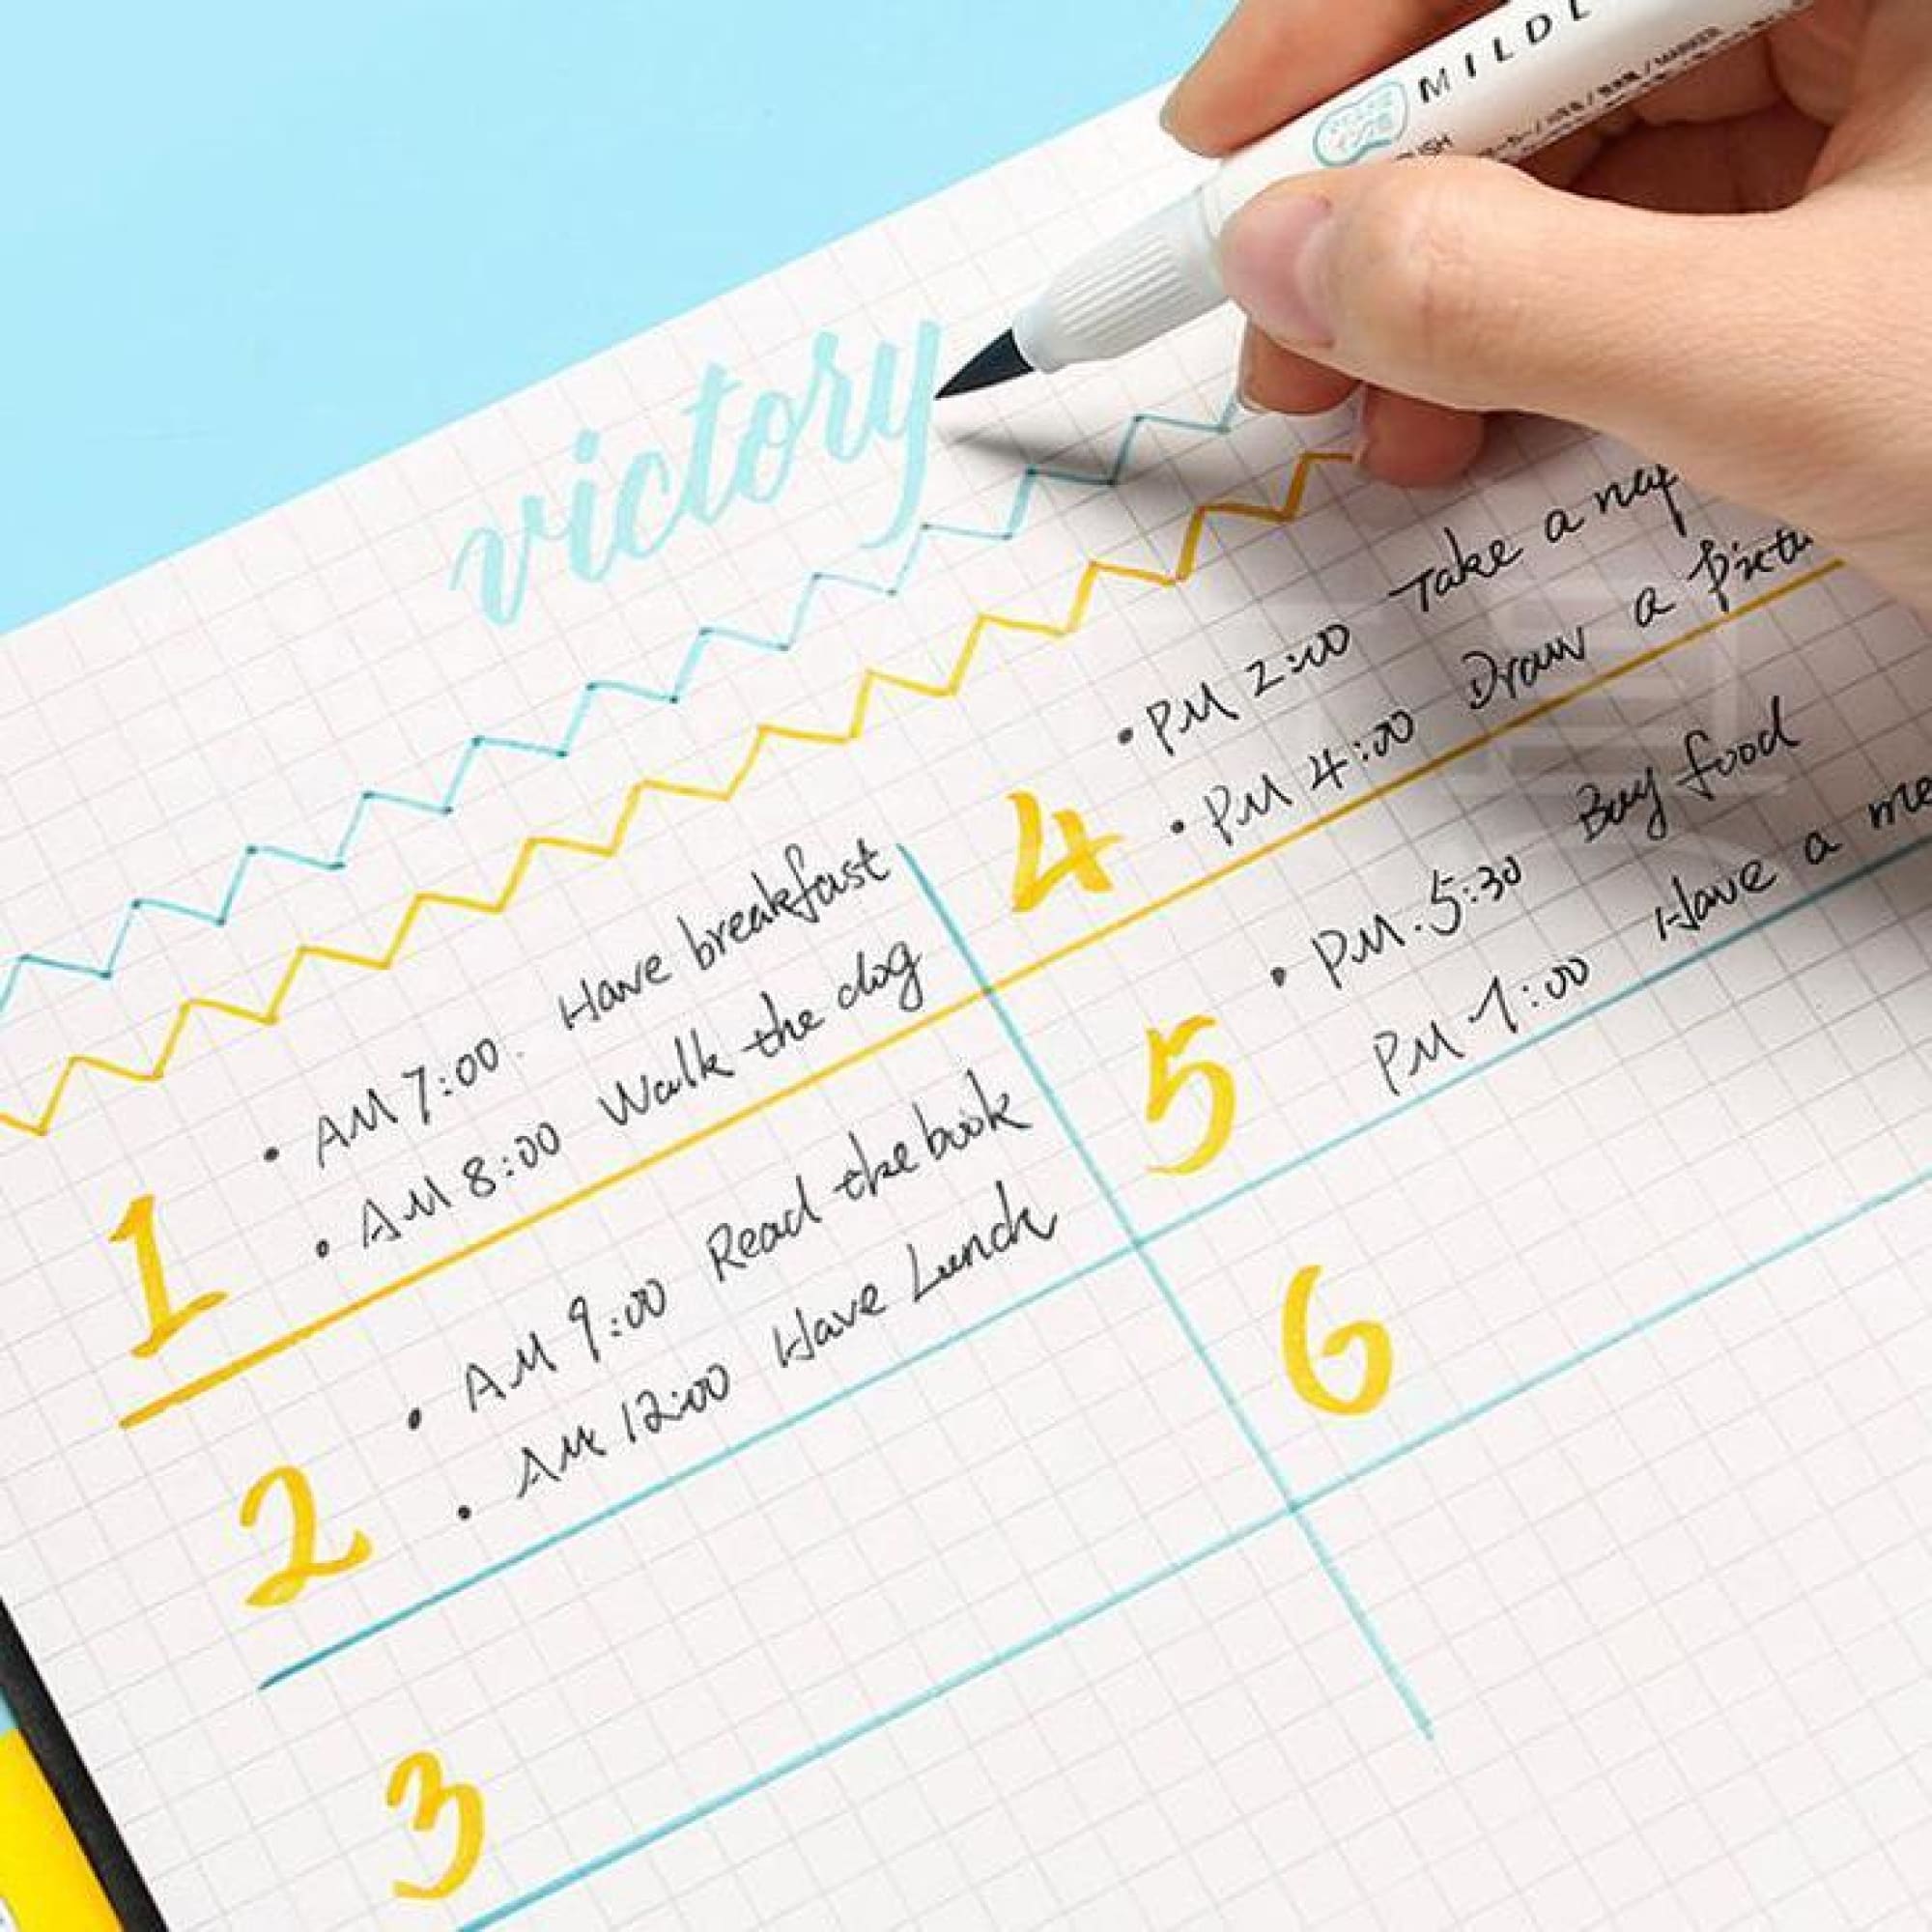 MILDL
victory
1
• AM 7:00. Have breakfast
• AM 8:00 Walk the dog
2
• AM 9:00 Read the book
• AM 12:00 Have Lunch
3
4
• PM 2:00 Take a nap
• PM 4:00 Draw a Pictu
5
• PM. 5:30 Buy food
PM 7:00 Have a me
6